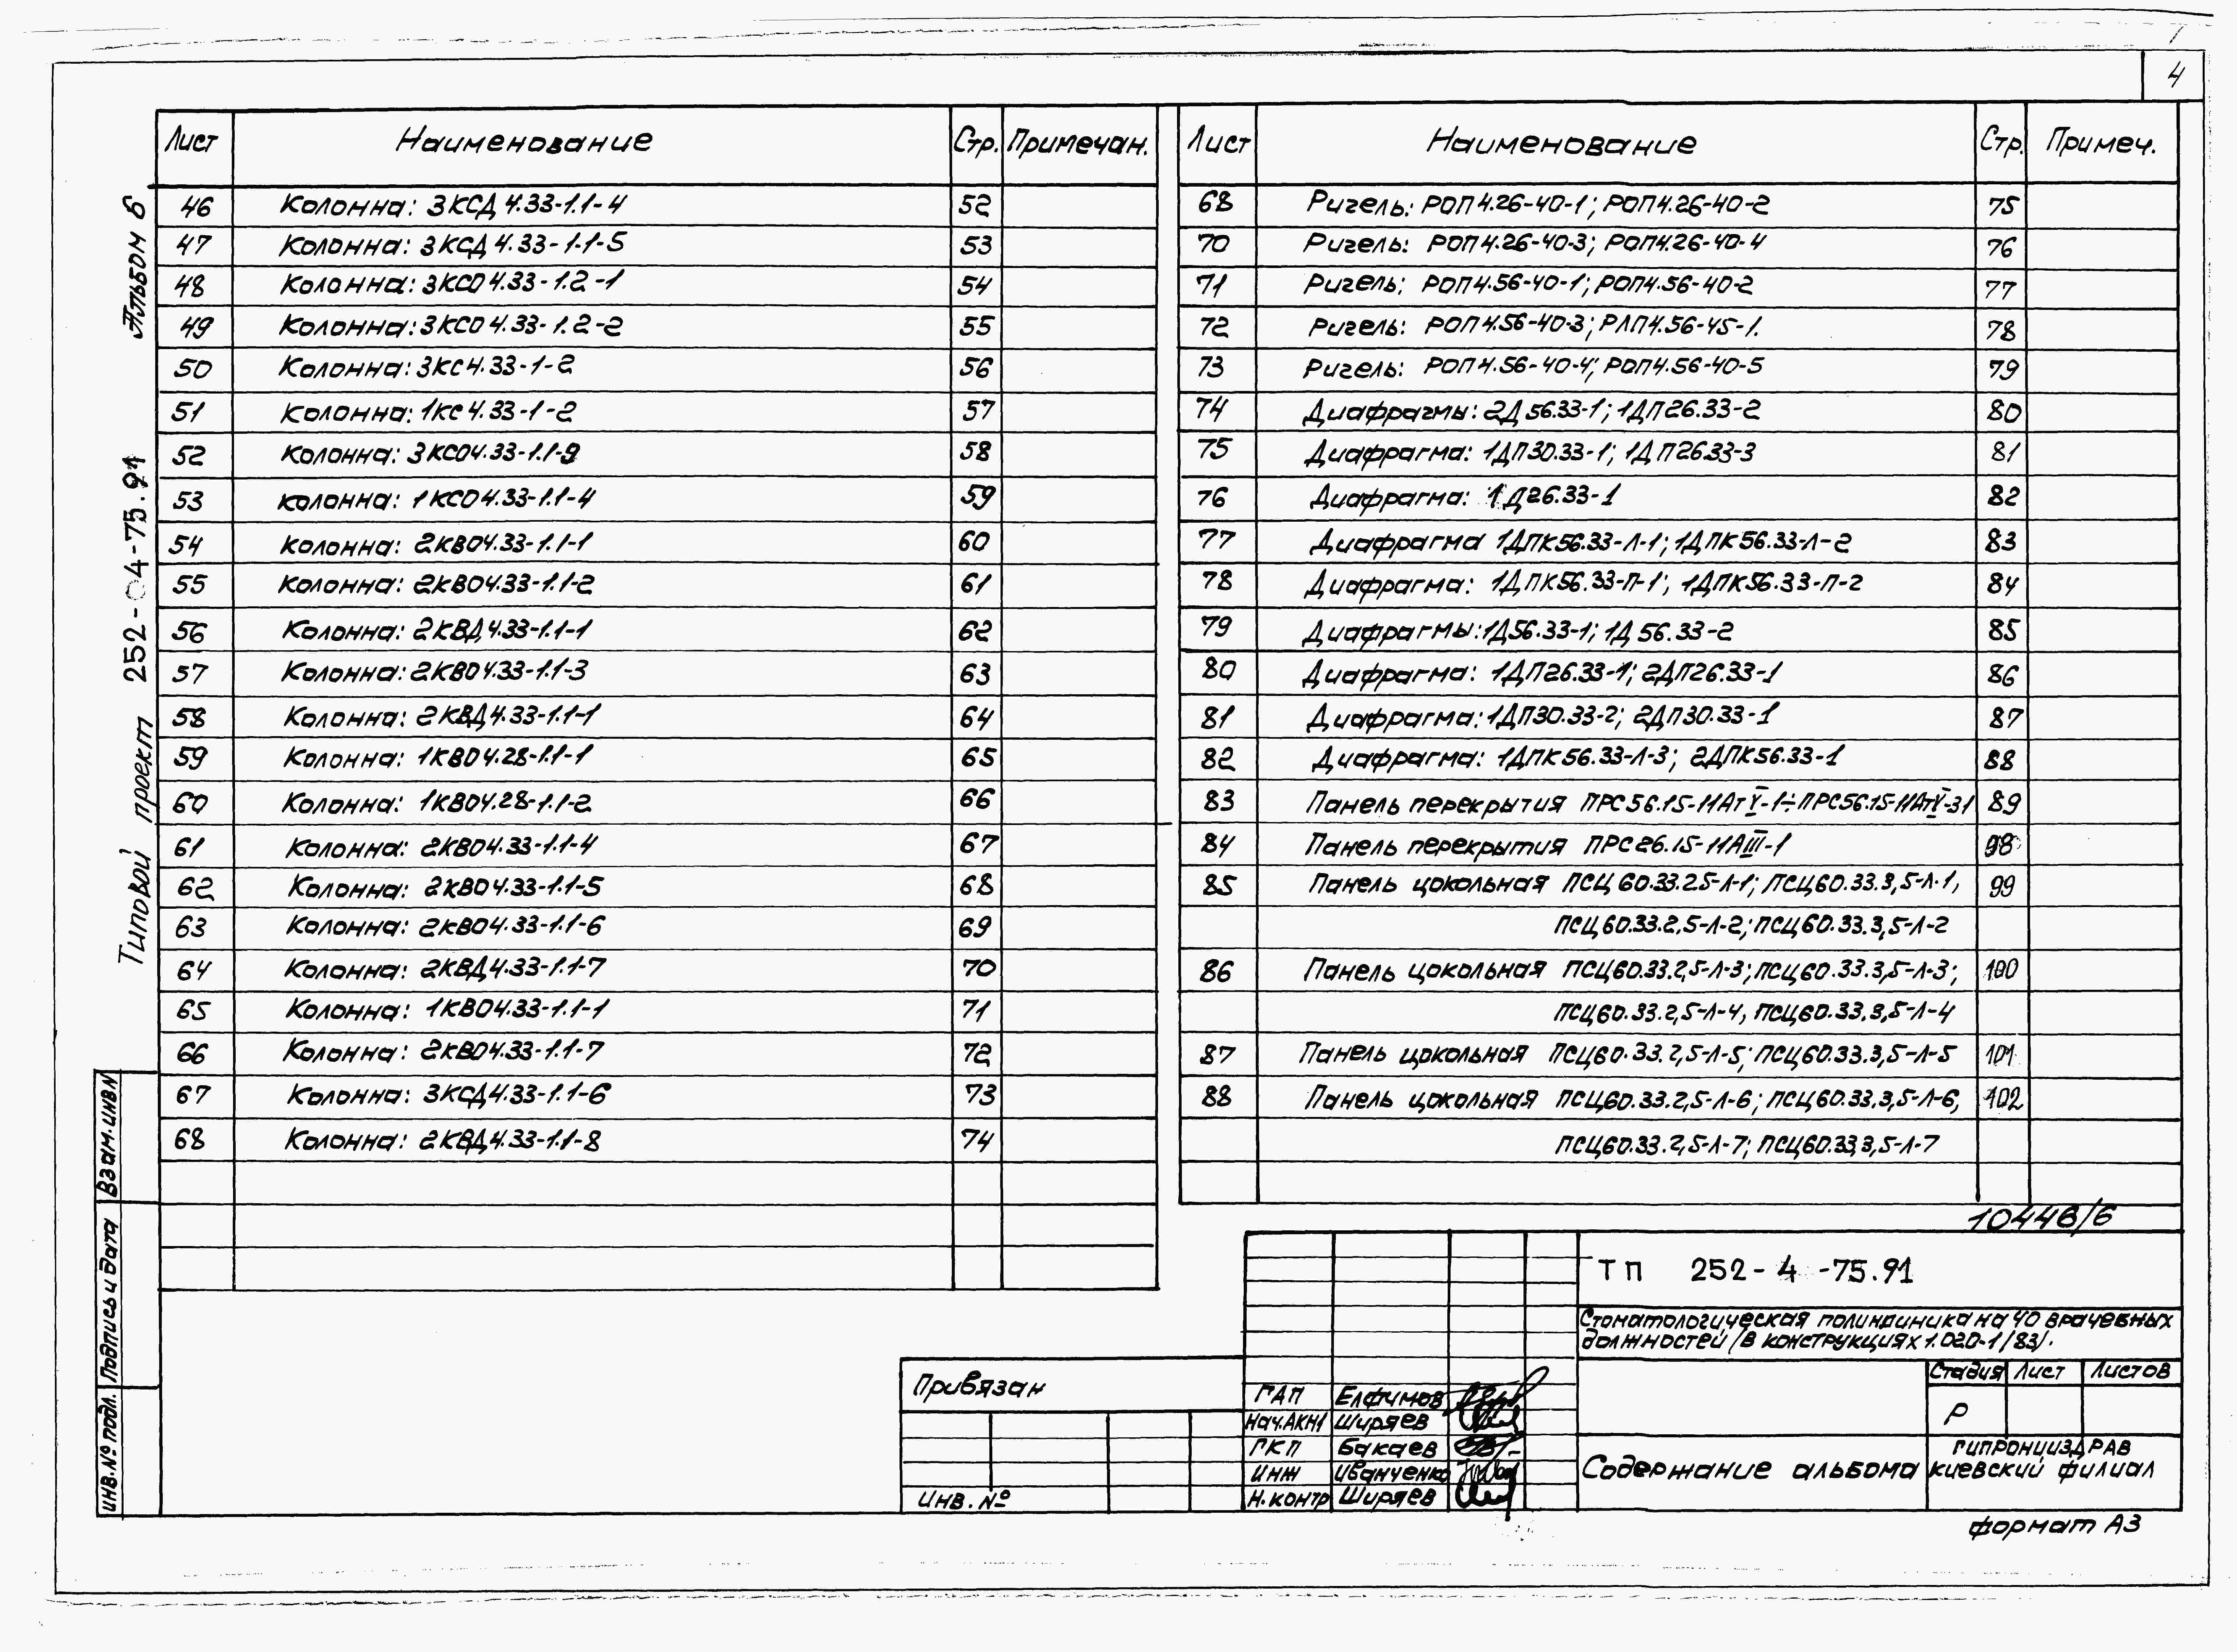 4
Лист Наименование Стр. Примечан.
46 Колонна: 3КСД 4.33-1.1-4 52
47 Колонна: 3КСД 4.33-1.1-5 53
48 Колонна: 3КСО 4.33-1.2-1 54
49 Колонна: 3КСО 4.33-1.2-2 55
50 Колонна: 3КС 4.33-1-2 56
51 Колонна: 1КС 4.33-1-2 57
52 Колонна: 3КСО4.33-1.1-9 58
53 колонна: 1КСО 4.33-1.1-4 59
54 Колонна: 2КВО4.33-1.1-1 60
55 Колонна: 2КВО4.33-1.1-2 61
56 Колонна: 2КВД4.33-1.1-1 62
57 Колонна: 2КВО4.33-1.1-3 63
58 Колонна: 2КВД4.33-1.1-1 64
59 Колонна: 1КВО4.28-1.1-1 65
60 Колонна: 1КВО4.28-1.1-2 66
61 Колонна: 2КВО4.33-1.1-4 67
62 Колонна: 2КВО4.33-1.1-5 68
63 Колонна: 2КВО4.33-1.1-6 69
64 Колонна: 2КВД4.33-1.1-7 70
65 Колонна: 1КВО4.33-1.1-1 71
66 Колонна: 2КВО4.33-1.1-7 72
67 Колонна: 3КСД4.33-1.1-6 73
68 Колонна: 2КВД4.33-1.1-8 74
Лист Наименование Стр. Примеч.
68 Ригель: РОП4.26-40-1; РОП4.26-40-2 75
70 Ригель: РОП4.26-40-3; РОП4.26-40-4 76
71 Ригель: РОП4.56-40-1; РОП4.56-40-2 77
72 Ригель: РОП4.56-40-3; РЛП4.56-45-1. 78
73 Ригель: РОП4.56-40-4; РОП4.56-40-5 79
74 Диафрагмы: 2Д56.33-1; 1ДП26.33-2 80
75 Диафрагма: 1ДП30.33-1; 1ДП26.33-3 81
76 Диафрагма: 1Д26.33-1 82
77 Диафрагма 1ДПК56.33-Л-1; 1ДПК56.33-Л-2 83
78 Диафрагма: 1ДПК56.33-П-1; 1ДПК56.33-П-2 84
79 Диафрагмы: 1Д56.33-1; 1Д56.33-2 85
80 Диафрагма: 1ДП26.33-1; 2ДП26.33-1 86
81 Диафрагма: 1ДП30.33-2; 2ДП30.33-1 87
82 Диафрагма: 1ДПК56.33-Л-3; 2ДПК56.33-1 88
83 Панель перекрытия ПРС56.15-11АтV-1÷ПРС56.15-11АтV-31 89
84 Панель перекрытия ПРС26.15-11АIII-1 98
85 Панель цокольная ПСЦ60.33.25-Л-1; ПСЦ60.33.3,5-Л-1, 99
ПСЦ60.33.2,5-Л-2; ПСЦ60.33.3,5-Л-2
86 Панель цокольная ПСЦ60.33.2,5-Л-3; ПСЦ60.33.3,5-Л-3; 100
ПСЦ60.33.2,5-Л-4, ПСЦ60.33.3,5-Л-4
87 Панель цокольная ПСЦ60.33.2,5-Л-5; ПСЦ60.33.3,5-Л-5 101
88 Панель цокольная ПСЦ60.33.2,5-Л-6; ПСЦ60.33.3,5-Л-6, 102
ПСЦ60.33.2,5-Л-7; ПСЦ60.33.3,5-Л-7
Альбом 6
Типовой проект 252-04-75.91
Взам.инвN
Подпись и дата
инв.№ подл.
10446/6
ТП 252-4-75.91
Стоматологическая поликлиника на 40 врачебных
должностей /в конструкциях 1.020-1/83/.
Стадия Лист Листов
Р
Содержание альбома
гипронииздрав
киевский филиал
Привязан
инв. №
ГАП Елфимов
Нач.АКН1 Ширяев
ГКП Бакаев
инж Иванченко
Н.контр Ширяев
формат А3